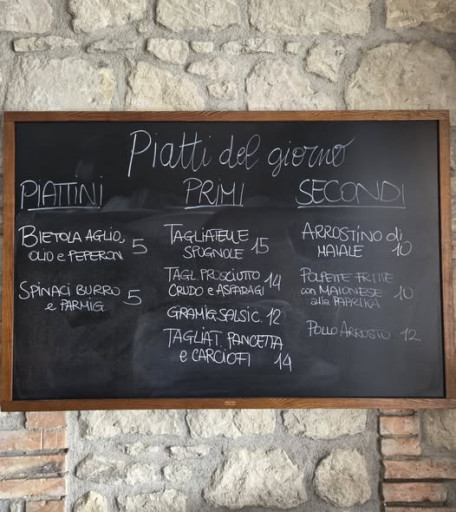 Piatti del giorno
PIATTINI
BIETOLA AGLIO,
OLIO e PEPERON 5
SPINACI BURRO
e PARMIG 5
PRIMI
TAGLIATELLE
SPUGNOLE 15
TAGL PROSCIUTTO
CRUDO e ASPARAGI 14
GRAMIG. SALSIC. 12
TAGLIAT. PANCETTA
e CARCIOFI 14
SECONDI
ARROSTINO di
MAIALE 10
POLPETTE FRITTE
con MAIONESE
alla PAPRIKA 10
POLLO ARROSTO 12